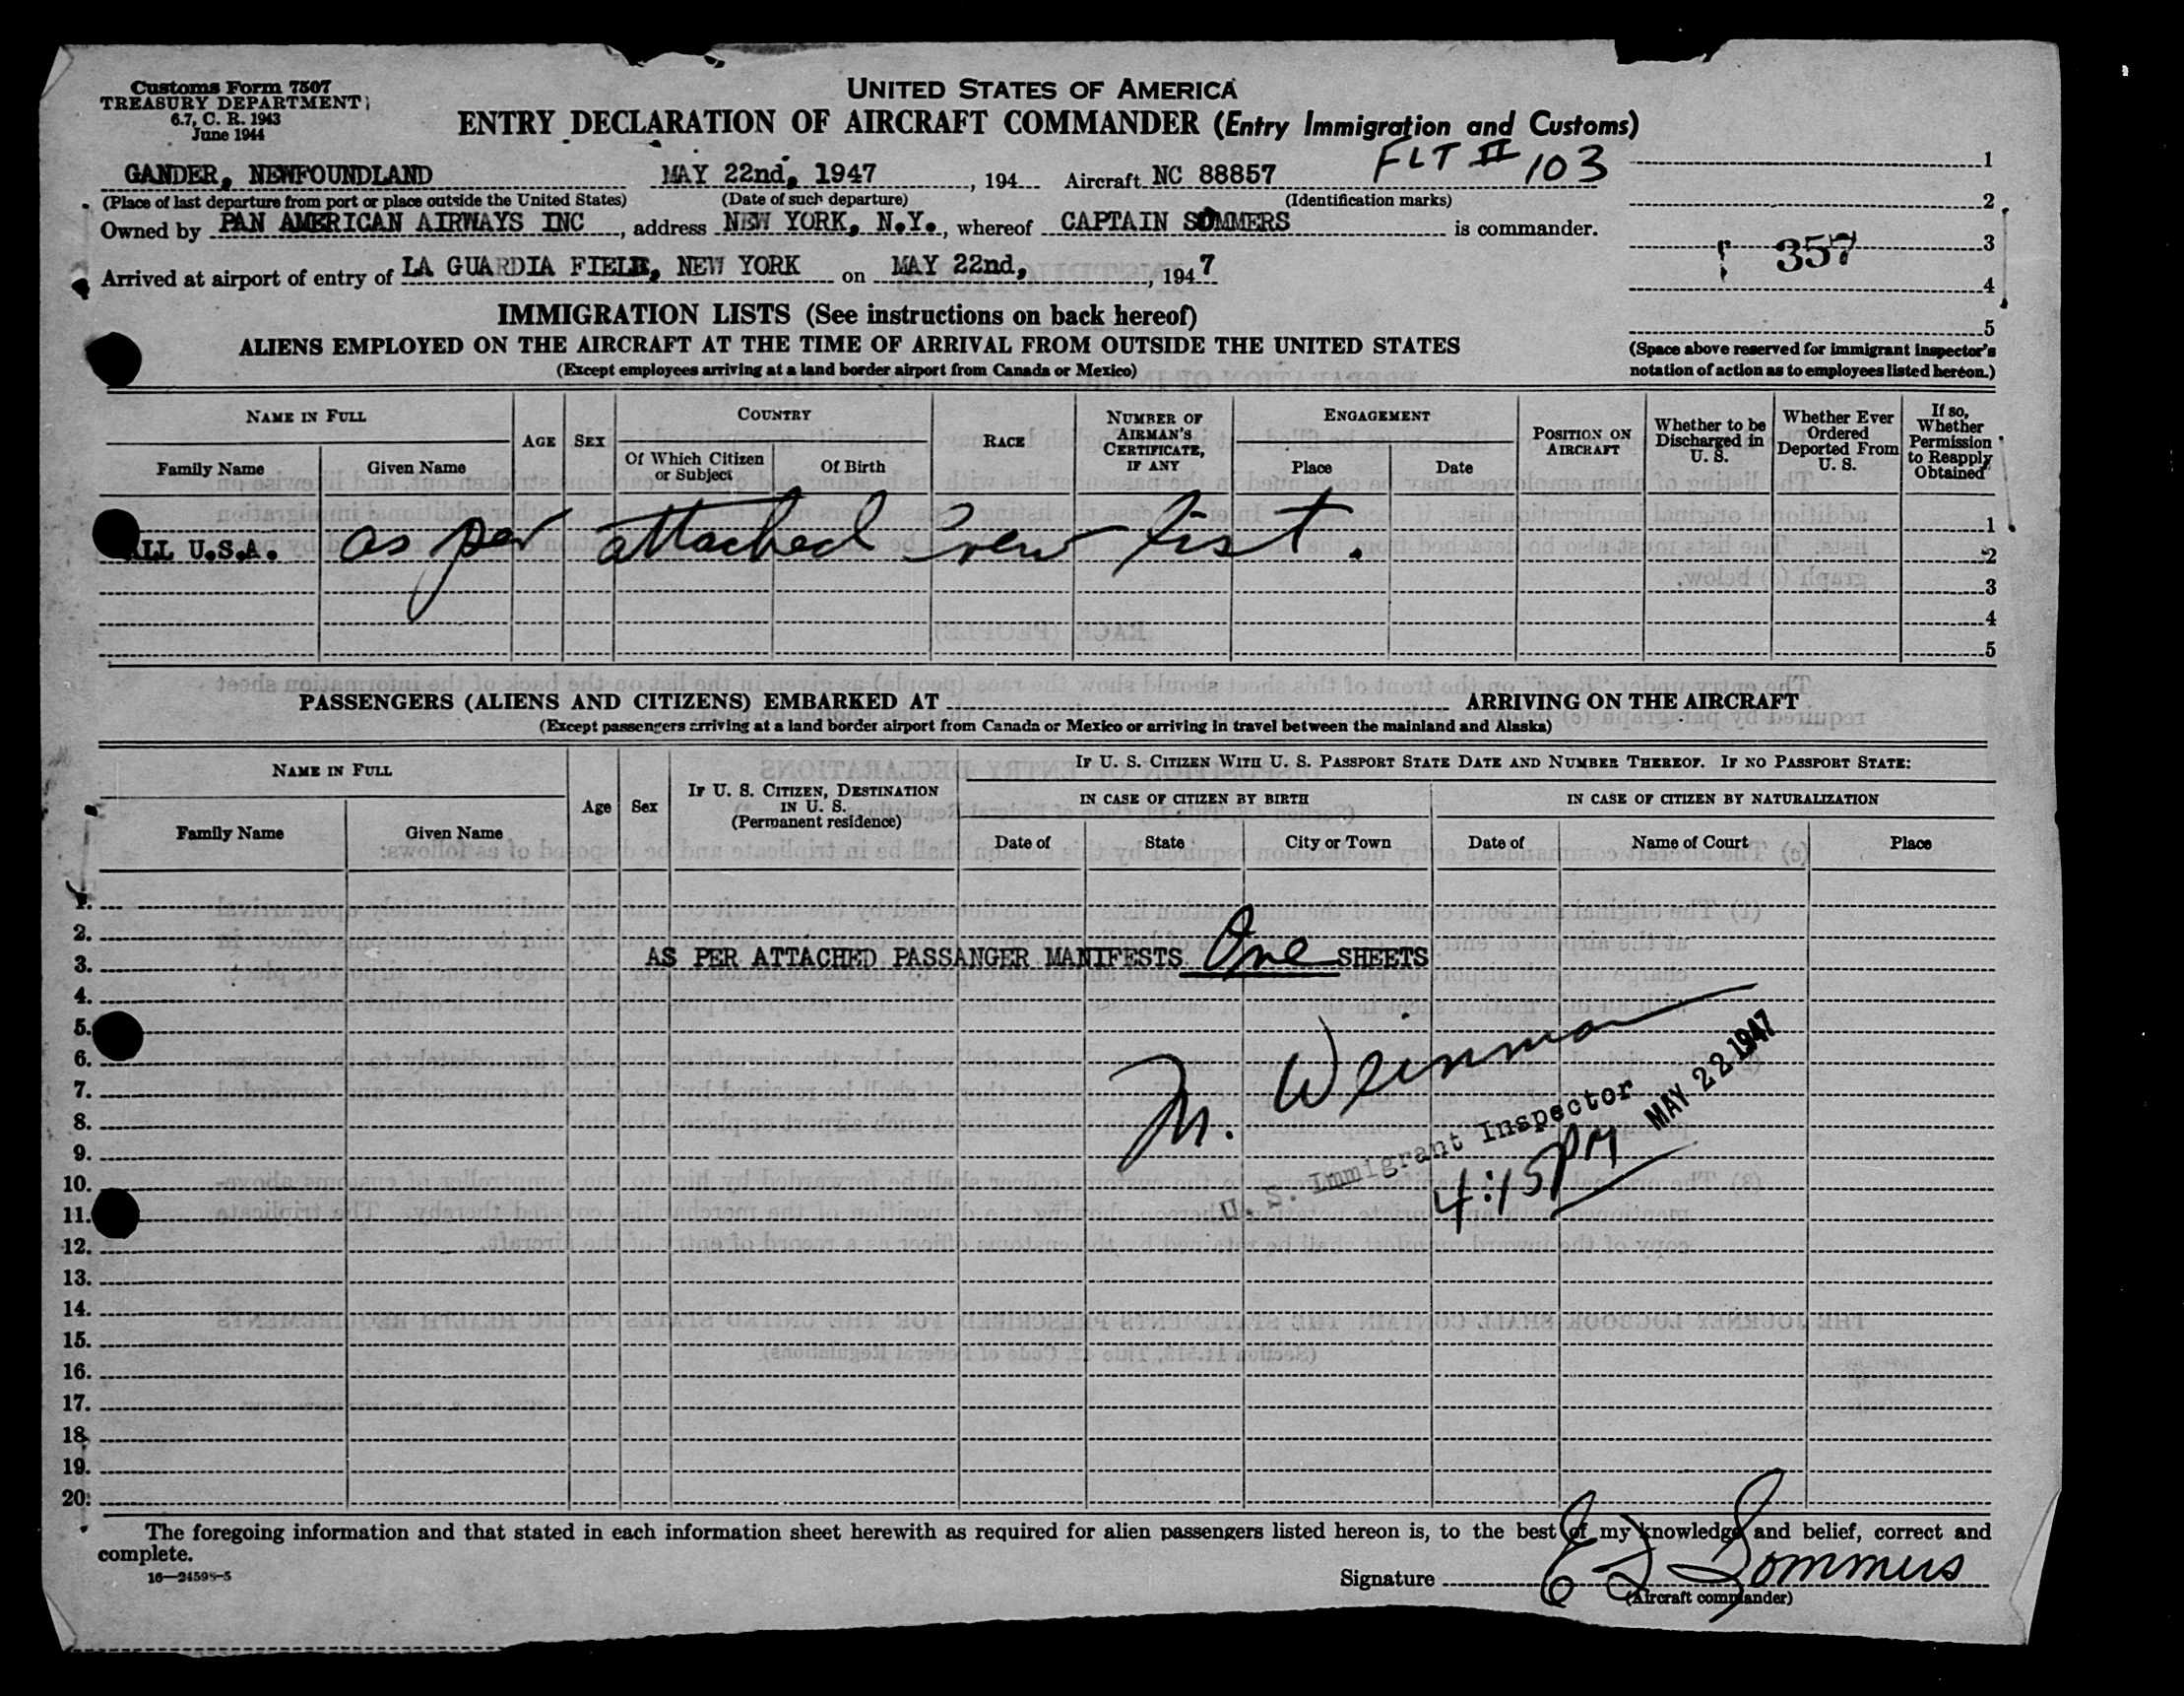 Customs Form 7507
TREASURY DEPARTMENT
6.7, C. R. 1943
June 1944
UNITED STATES OF AMERICA
ENTRY DECLARATION OF AIRCRAFT COMMANDER (Entry Immigration and Customs)
FLT II 103
GANDER, NEWFOUNDLAND MAY 22nd, 1947, 194 Aircraft NC 88857
(Place of last departure from port or place outside the United States) (Date of such departure) (Identification marks)
Owned by PAN AMERICAN AIRWAYS INC, address NEW YORK, N.Y., whereof CAPTAIN SOMMERS is commander.
Arrived at airport of entry of LA GUARDIA FIELD, NEW YORK on MAY 22nd, 1947
1
2
3
357
4
5
(Space above reserved for immigrant inspector's
notation of action as to employees listed hereon.)
IMMIGRATION LISTS (See instructions on back hereof)
ALIENS EMPLOYED ON THE AIRCRAFT AT THE TIME OF ARRIVAL FROM OUTSIDE THE UNITED STATES
(Except employees arriving at a land border airport from Canada or Mexico)
NAME IN FULL
Family Name
Given Name
AGE
SEX
COUNTRY
Of Which Citizen
or Subject
Of Birth
RACE
NUMBER OF
AIRMAN'S
CERTIFICATE,
IF ANY
ENGAGEMENT
Place
Date
POSITION ON
AIRCRAFT
Whether to be
Discharged in
U. S.
Whether Ever
Ordered
Deported From
U. S.
If so,
Whether
Permission
to Reapply
Obtained
1
ALL U.S.A. as per attached Crew list. 2
3
4
5
PASSENGERS (ALIENS AND CITIZENS) EMBARKED AT ARRIVING ON THE AIRCRAFT
(Except passengers arriving at a land border airport from Canada or Mexico or arriving in travel between the mainland and Alaska)
NAME IN FULL
Family Name
Given Name
Age
Sex
IF U. S. CITIZEN, DESTINATION
IN U. S.
(Permanent residence)
IF U. S. CITIZEN WITH U. S. PASSPORT STATE DATE AND NUMBER THEREOF. IF NO PASSPORT STATE:
IN CASE OF CITIZEN BY BIRTH
Date of
State
City or Town
IN CASE OF CITIZEN BY NATURALIZATION
Date of
Name of Court
Place
1.
2.
3. AS PER ATTACHED PASSANGER MANIFESTS One SHEETS
4.
5.
6.
M. Weinman
7.
8.
9.
U. S. Immigrant Inspector MAY 22 1947
4:15 PM
10.
11.
12.
13.
14.
15.
16.
17.
18.
19.
20.
The foregoing information and that stated in each information sheet herewith as required for alien passengers listed hereon is, to the best of my knowledge and belief, correct and
complete.
16—24598-5
Signature
Sommers
(Aircraft commander)